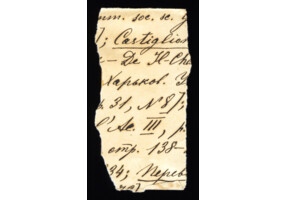 mm. soc. sc. g
]; Castiglion
— De Il-Che
Харьков. У
p 31, № 8];
l'Ac. III, p.
стр. 138-
84; Перев